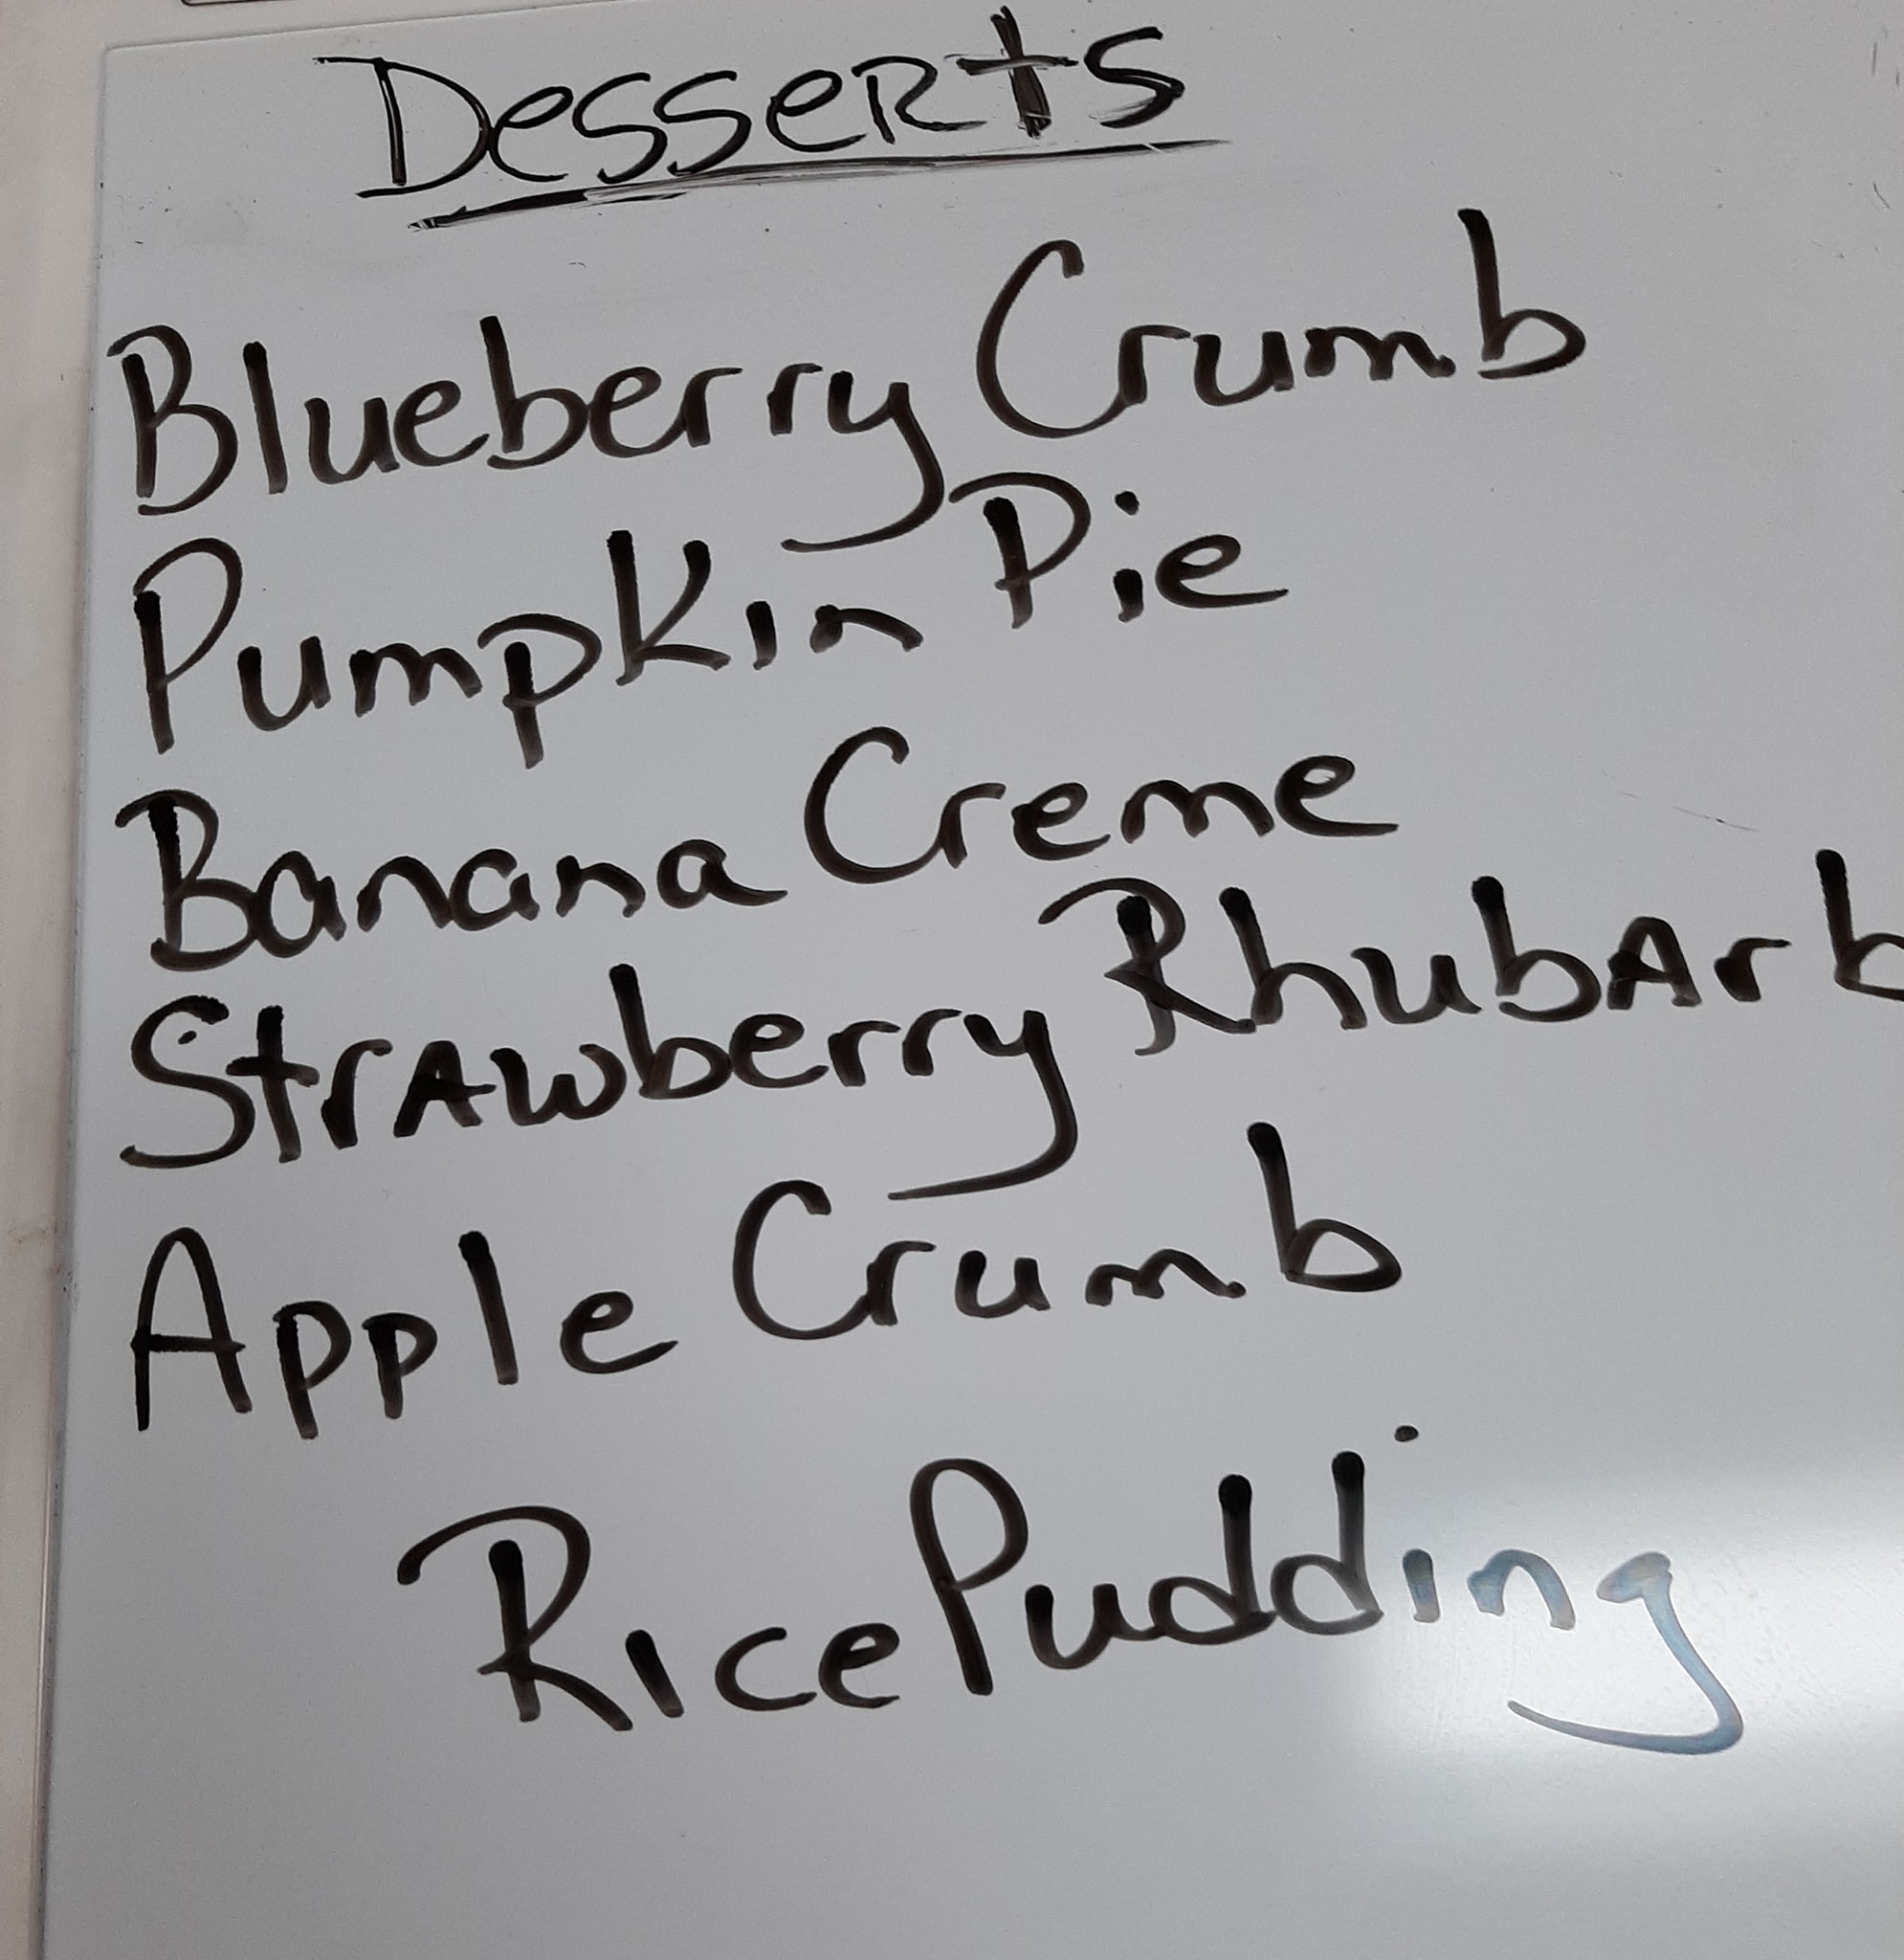 Desserts
Blueberry Crumb
Pumpkin Pie
Banana Creme
Strawberry Rhubarb
Apple Crumb
Rice Pudding